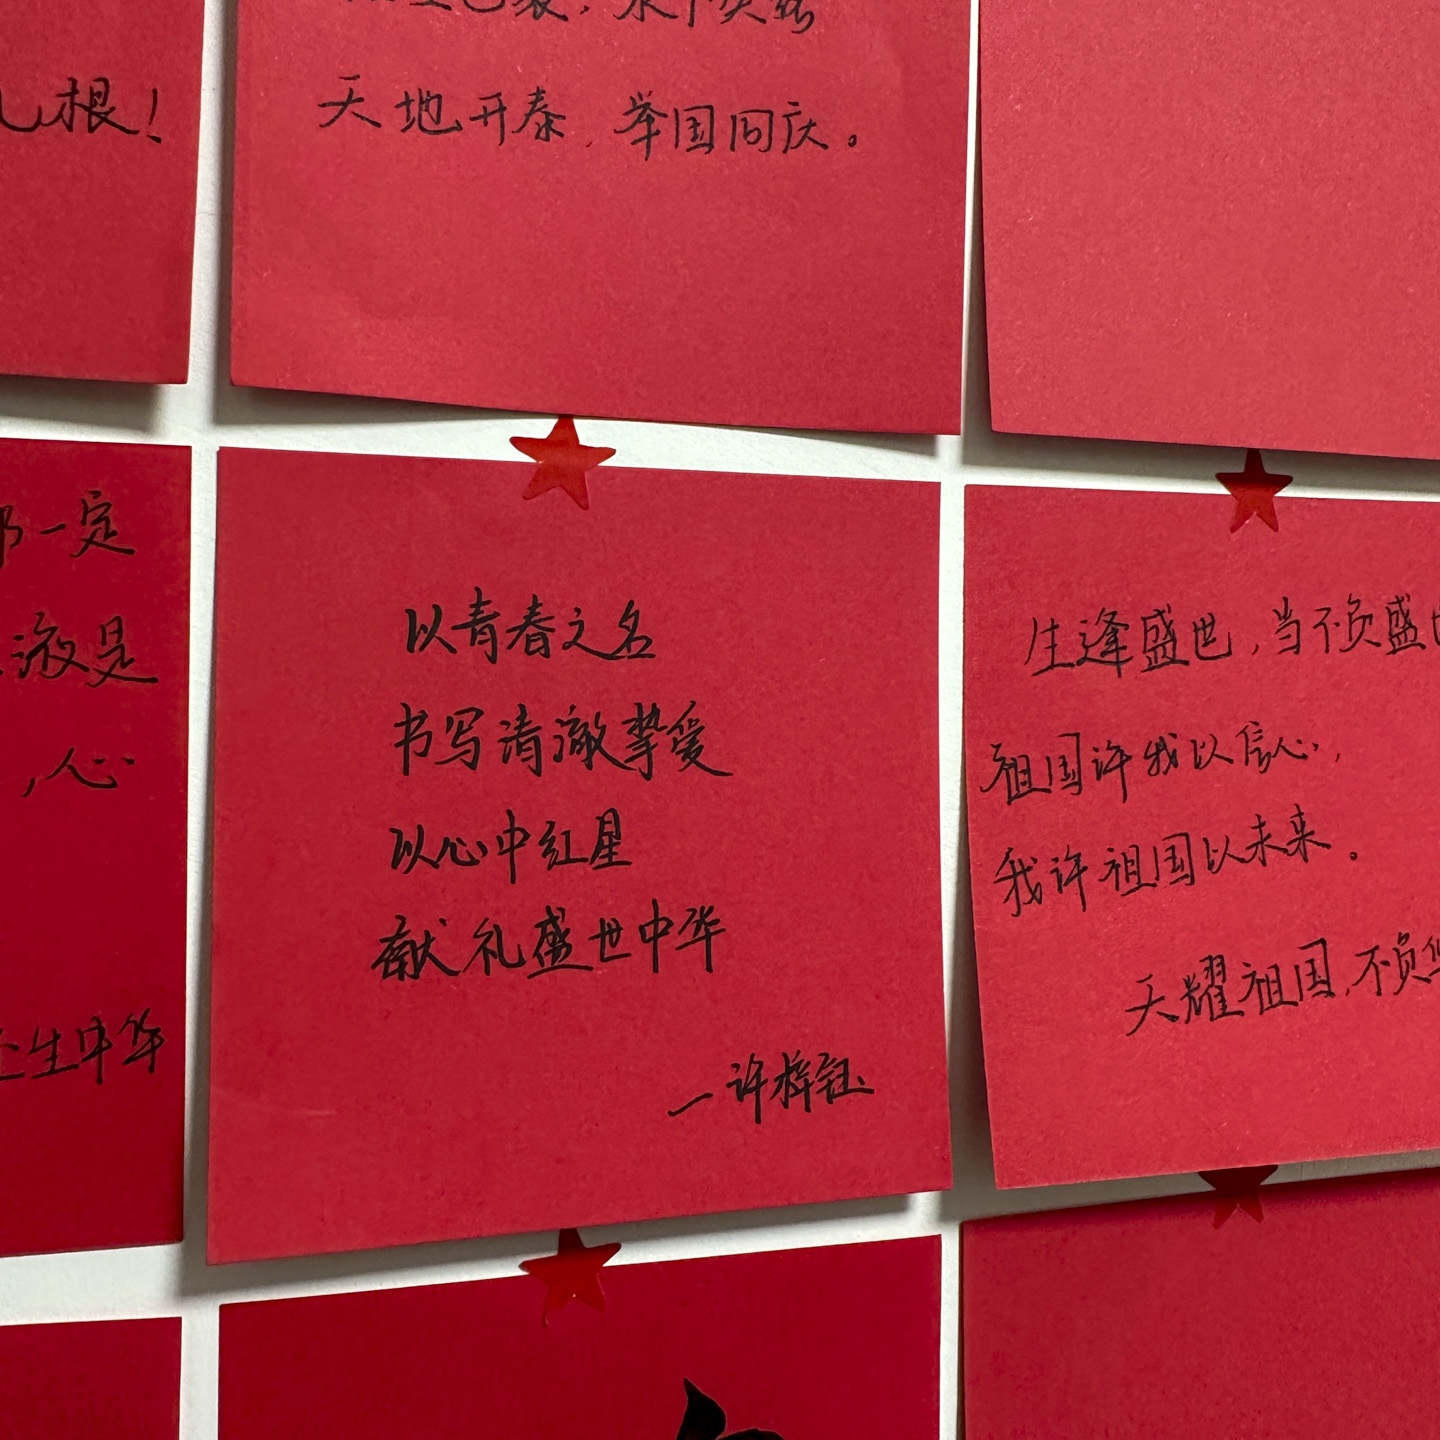 根！
天地开泰，举国同庆。
一定
液是
，人心
生中华
以青春之名
书写清澈挚爱
以心中红星
献礼盛世中华
一许梓钰
生逢盛世，当不负盛世
祖国许我以信心，
我许祖国以未来。
天耀祖国，不负